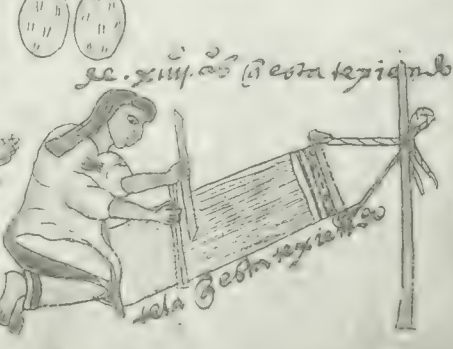 de .xiiij. años q̃ esta texiendo
tela q̃ esta texiendo